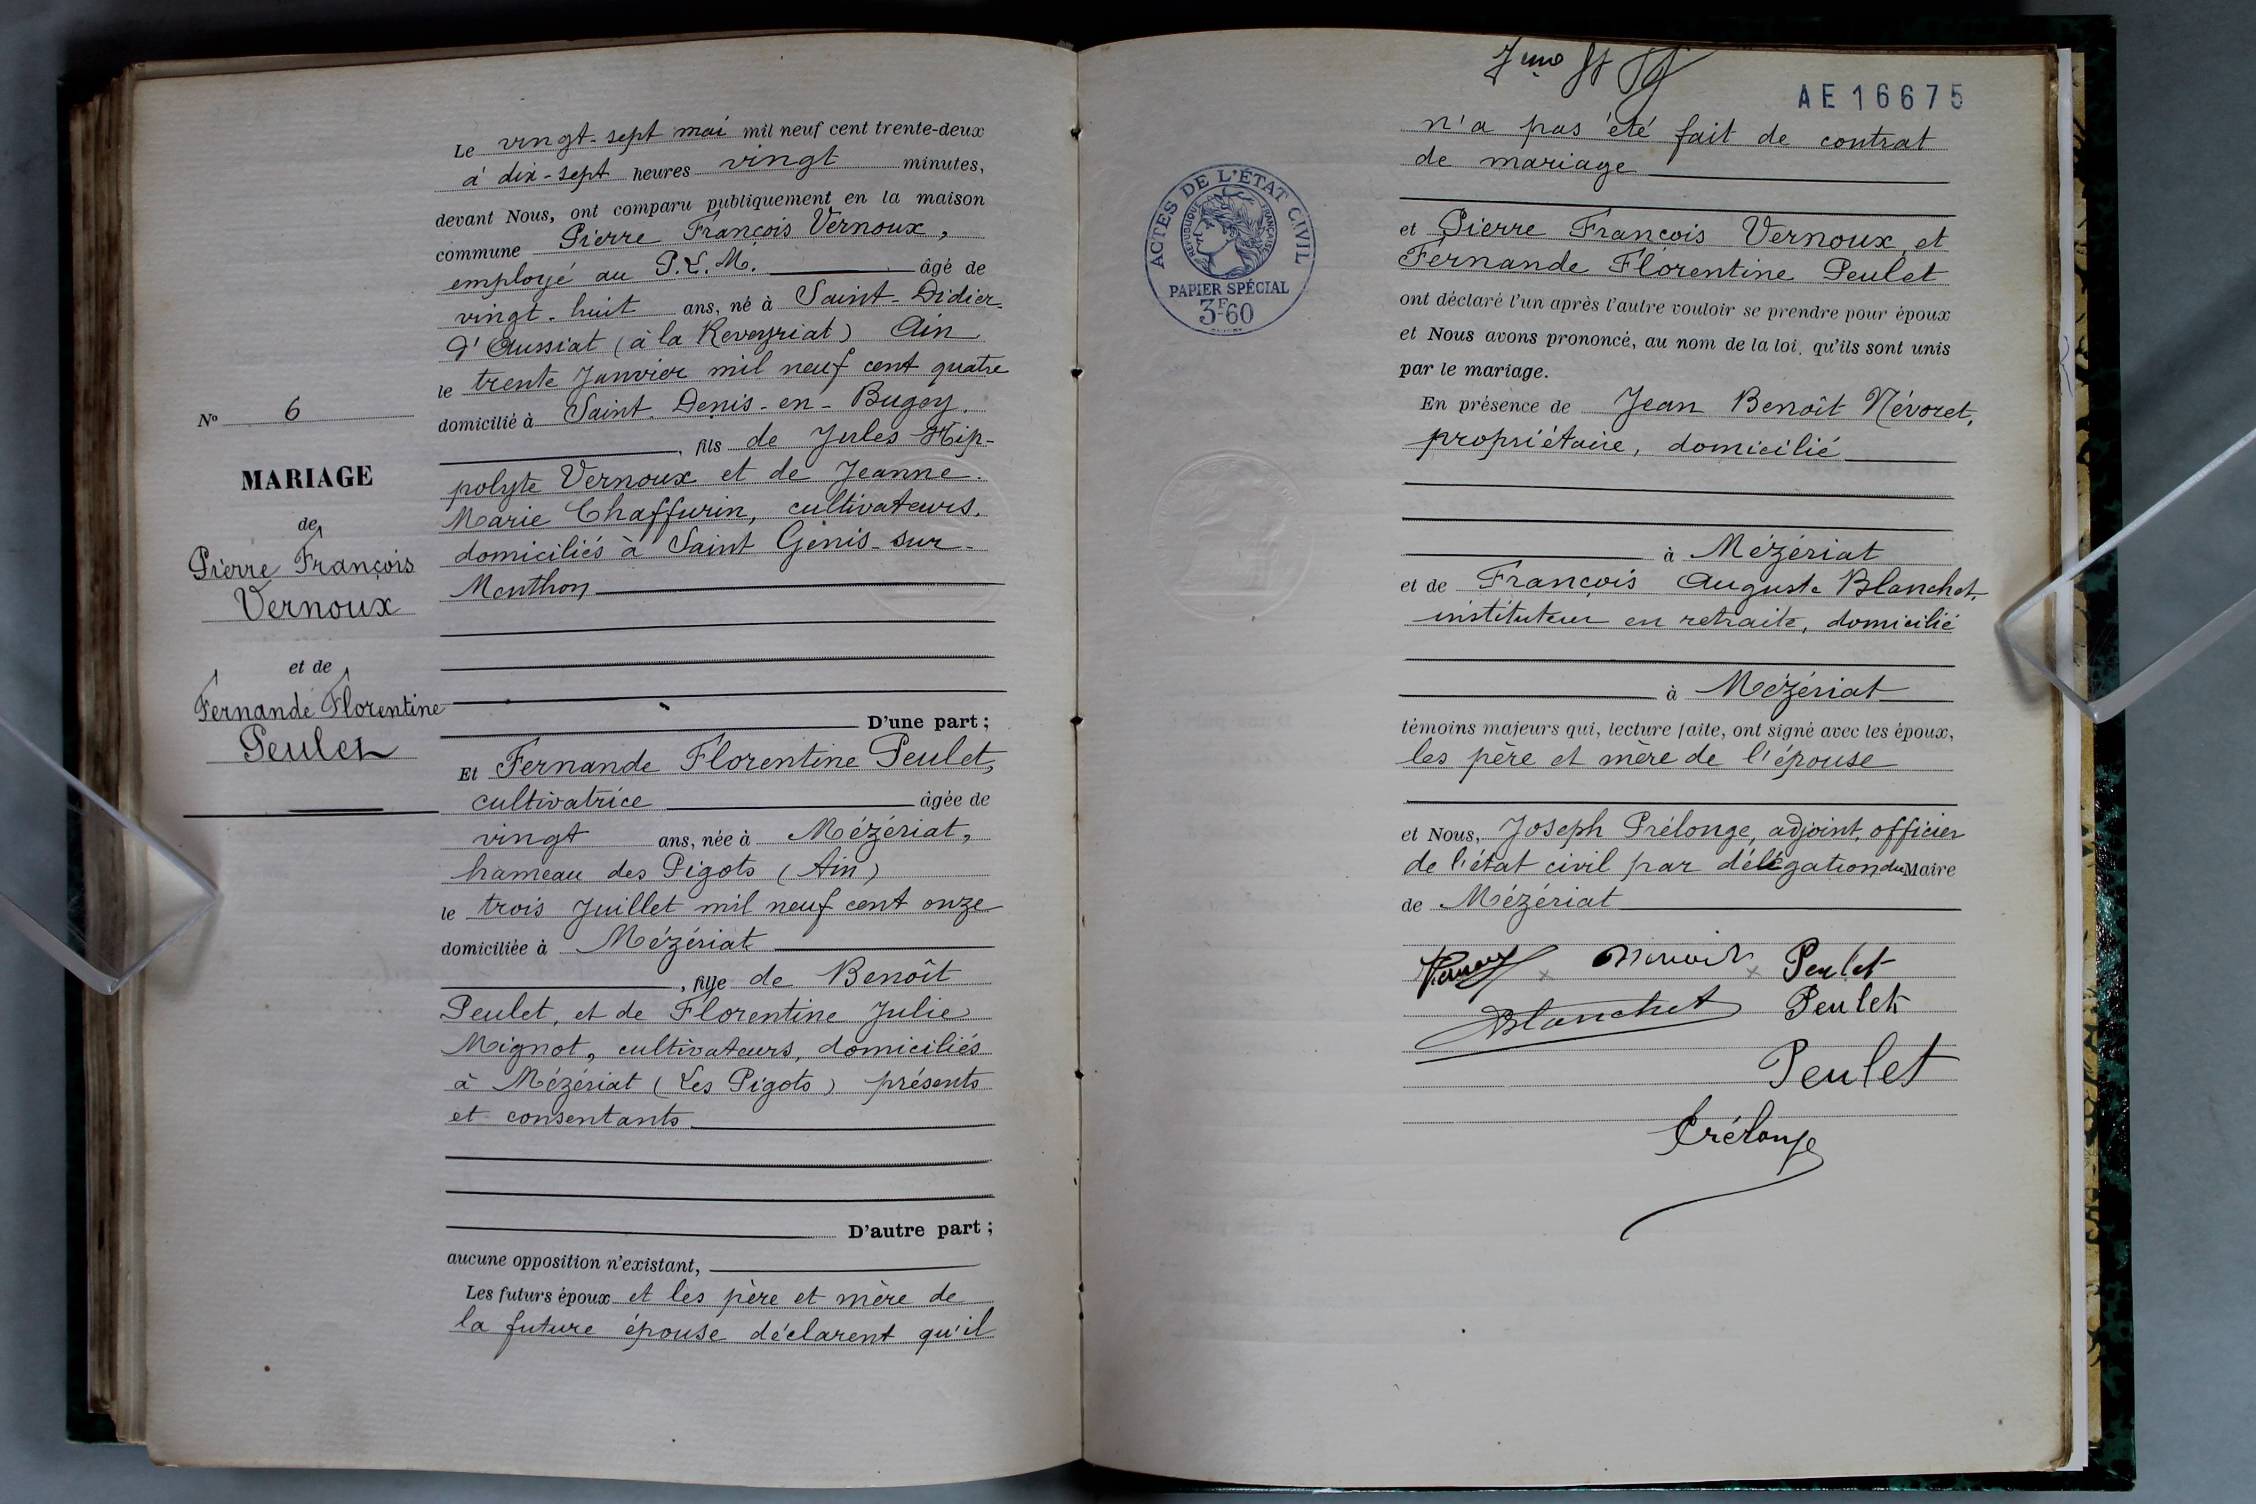 Le vingt-sept mai mil neuf cent trente-deux
à dix-sept heures vingt minutes,
devant Nous, ont comparu publiquement en la maison
commune Pierre François Vernoux,
employé au P.L.M. âgé de
vingt-huit ans, né à Saint-Didier-
d'Aussiat (à la Reveyriat) Ain
le trente Janvier mil neuf cent quatre
domicilié à Saint-Denis-en-Bugey.
, fils de Jules Hip-
polyte Vernoux et de Jeanne
Marie Chaffurin, cultivateurs,
domiciliés à Saint Genis-sur-
Menthon
D'une part ;
Et Fernande Florentine Peulet,
cultivatrice âgée de
vingt ans, née à Mézériat,
hameau des Pigots (Ain)
le trois Juillet mil neuf cent onze
domiciliée à Mézériat
, fille de Benoît
Peulet, et de Florentine Julie
Mignot, cultivateurs, domiciliés
à Mézériat (Les Pigots) présents
et consentants
D'autre part ;
aucune opposition n'existant,
Les futurs époux et les père et mère de
la future épouse déclarent qu'il
N° 6
MARIAGE
de
Pierre François
Vernoux
et de
Fernande Florentine
Peulet
7me
AE16675
n'a pas été fait de contrat
de mariage
ACTES DE L'ÉTAT CIVIL
RÉPUBLIQUE FRANÇAISE
PAPIER SPÉCIAL
3F60
et Pierre François Vernoux et
Fernande Florentine Peulet
ont déclaré l'un après l'autre vouloir se prendre pour époux
et Nous avons prononcé, au nom de la loi, qu'ils sont unis
par le mariage.
En présence de Jean Benoît Névoret,
propriétaire, domicilié
à Mézériat
et de François Auguste Blanchet,
instituteur en retraite, domicilié
à Mézériat
témoins majeurs qui, lecture faite, ont signé avec les époux,
les père et mère de l'épouse
et Nous, Joseph Prélonge, adjoint, officier
de l'état civil par délégation du Maire
de Mézériat
Vernoux Peulet
Blanchet Peulet
Peulet
Prélonge